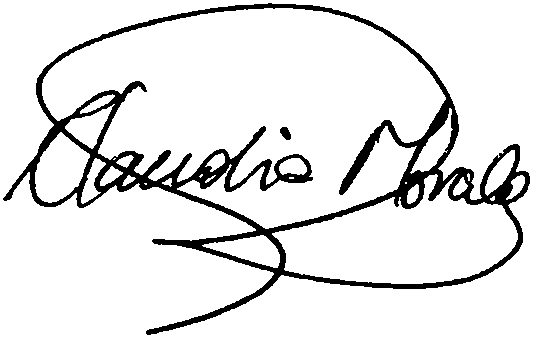 Claudia Morales